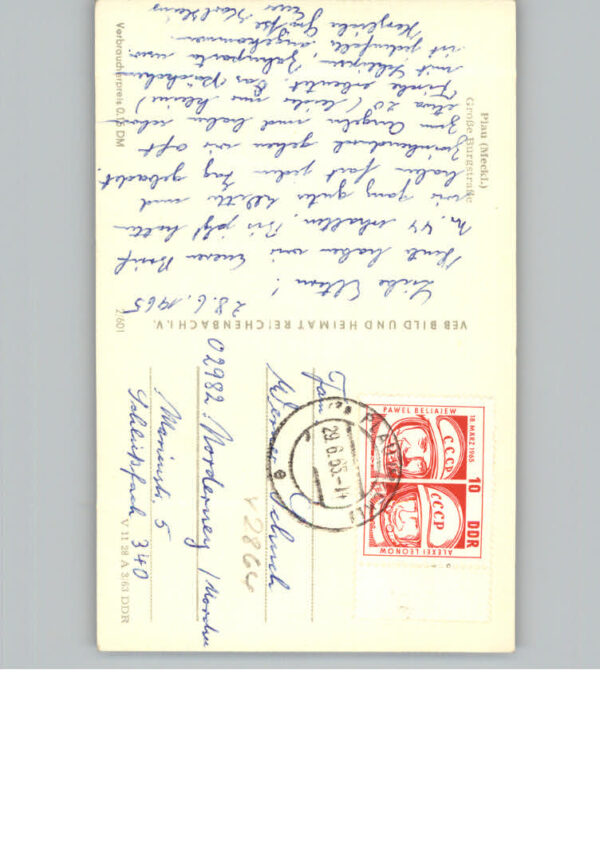 Plau (Meckl.)
Große Burgstraße
28.6.1965
Liebe Eltern!
Heute haben wir Eueren Brief
Nr. 44 erhalten. Bis jetzt hatten
wir ganz gutes Wetter und
haben fast jeden Tag gebadet.
Zwischendurch gehen wir oft
zum Angeln und haben schon
etwa 20 (leider nur kleine)
Fische erbeutet. Das Päckchen
mit Zahnpasta usw.
ist jedenfalls angekommen.
Herzliche Grüße
Euer
Verbraucherpreis DM
VEB BILD UND HEIMAT REICHENBACH I. V.
2/601
Werner
02982 Norderney
Marienstr. 5
Schließfach 340
V 11 28 A 3/63 DDR
V2864
PLAU
29.6.65
e
PAWEL BELJAJEW
18. MÄRZ 1965
CCCP
10 DDR
CCCP
ALEXEI LEONOW